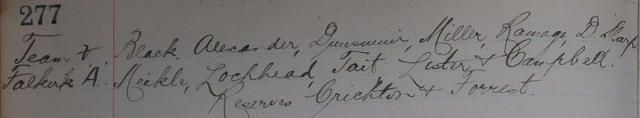 277
Team v. Black. Alexander, Dunsmuir, Miller, Ramage, D. Sharp
Falkirk A. Meikle, Lochhead, Tait Lister & Campbell.
Reserves Crichton & Forrest.